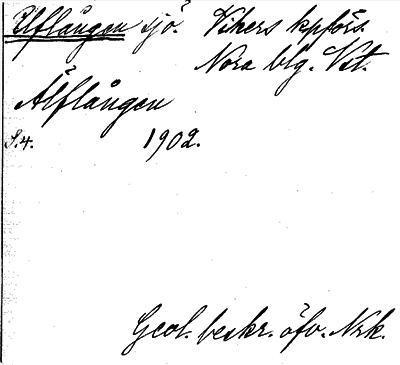 Älflången sjö. Vikers kpförs.
Nora blg. Vst.
Älflången
S. 4. 1902.
Geol. beskr. öfv. Nrk.